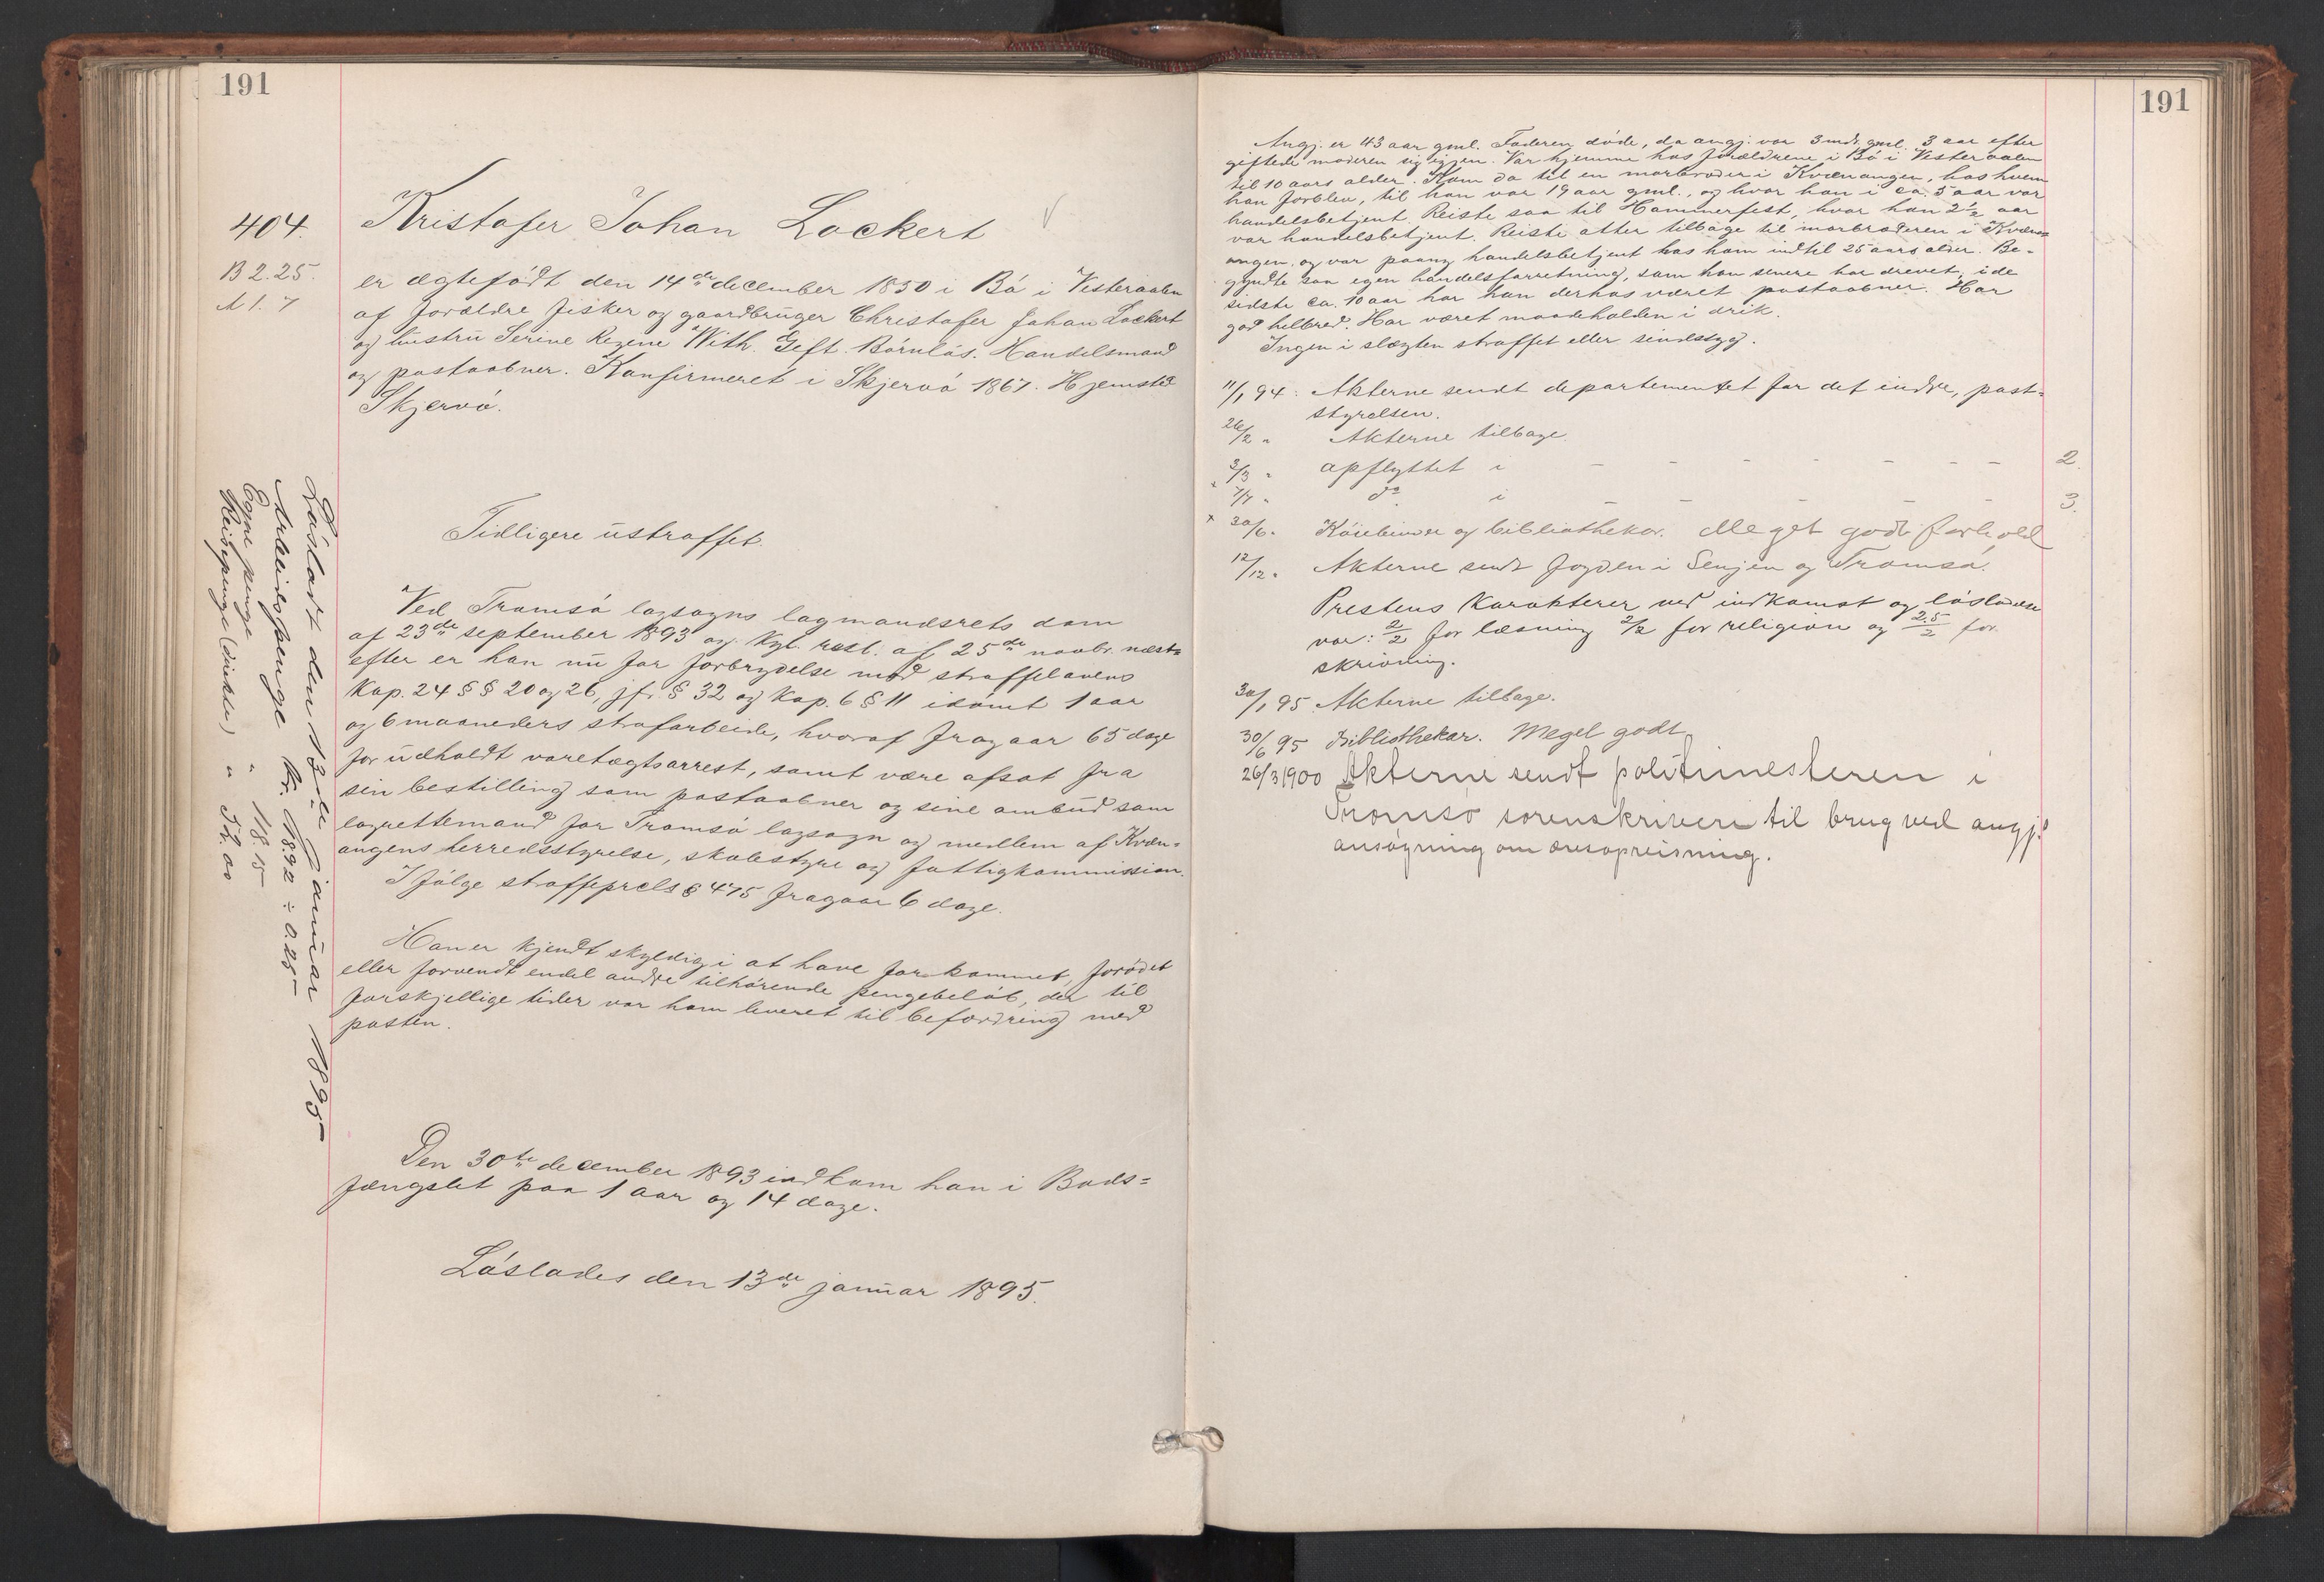 191
404.
B 2.25.
A 1.7
Kristofer Johan Lockert
er ægtefødt den 14de december 1850 i Bø i Vesteraalen
af forældre fisker og gaardbruger Christofer Johan Lockert
og hustru Serine Regine With. Gift. Børnløs. Handelsmand
og postaabner. Konfirmeret i Skjervø 1867. Hjemsted
Skjervø.
Tidligere ustraffet.
Ved Tromsø lagsogns lagmandsrets dom
af 23de september 1893 og kgl. resl. af 25de novbr. næst=
efter er han nu for forbrydelse mod straffelovens
Kap. 24 §§ 20 og 26, jfr. § 32 og Kap. 6 § 11 idømt 1 aar
og 6 maaneders strafarbeide, hvoraf fragaar 65 dage
for udholdt varetægtsarrest, samt være afsat fra
sin bestilling som postaabner og sine ombud som
lagrettemand for Tromsø lagsogn og medlem af Kvæn=
angens herredsstyrelse, skolestyre og fattigkommission.
I følge straffeprcls § 475 fragaar 6 dage.
Han er kjendt skyldig i at have forkommet, forødet
eller forvendt endel andre tilhørende pengebeløb, der til
forskjellige tider var ham leveret til befordring med
posten.
Den 30te december 1893 indkom han i Bods=
fængslet paa 1 aar og 14 dage.
Løslades den 13de januar 1895.
Løsladt den 13de Januar 1895
Arbeidspenge kr. 18.92 ÷ 0.25
Egne penge " 118.15
Reisepenge (direkte) "
191
Angj. er 43 aar gml. Faderen døde, da angj. var 3 mdr. gml. 3 aar efter
giftede moderen sig igjen. Var hjemme hos forældrene i Bø i Vesteraalen
til 10 aars alder. Kom da til en morbroder i Kvænangen, hos hvem
han forblev, til han var 19 aar gml., og hvor han i ca. 5 aar var
handelsbetjent. Reiste saa til Hammerfest, hvor han 2 1/2 aar
var handelsbetjent. Reiste atter tilbage til morbroderen i Kvæn=
angen, og var paany handelsbetjent hos ham indtil 25 aars alder. Be-
gyndte saa egen handelsforretning, som han senere har drevet; i de
sidste ca. 10 aar har han derhos været postaabner. Har
god helbred. Har været maadeholden i drik.
Ingen i slægten straffet eller sindssyg.
11/1 94. Akterne sendt departementet for det indre, post=
styrelsen.
26/2 " Akterne tilbage.
3/3 " opflyttet i - - - - - - - 2.
7/7 " do i - - - - - 3.
× 30/6 " bibliothekar. Meget godt forhold
12/12 " Akterne sendt fogden i Senjen og Tromsø.
Prestens Karakterer ved indkomst og løsladelse
var: 2/2 for læsning 2/2 for religion og 2.5/2 for
skrivning.
30/1 95. Akterne tilbage.
30/6 95 Bibliothekar. Meget godt
26/3 1900 Akterne sendt politimesteren i
Tromsø sorenskriveri til brug ved angj.s
ansøgning om æresopreisning.